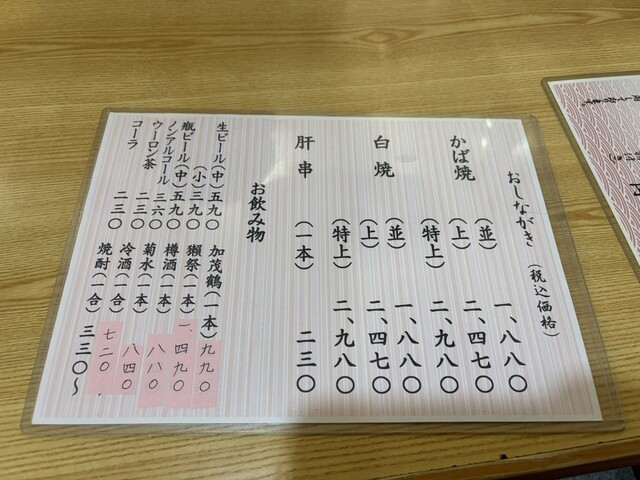 おしながき（税込価格）
かば焼（並）一、八八〇
（上）二、四七〇
（特上）二、九八〇
白焼（並）一、八八〇
（上）二、四七〇
（特上）二、九八〇
肝串（一本）二三〇
お飲み物
生ビール（中）五九〇 加茂鶴（一本）九九〇
（小）三九〇 獺祭（一本）一、四九〇
瓶ビール（中）五九〇 樽酒（一本）八八〇
ノンアルコール 三六〇 菊水（一本）八四〇
ウーロン茶 二三〇 冷酒（一合）七二〇
コーラ 二三〇 焼酎（一合）三三〇〜